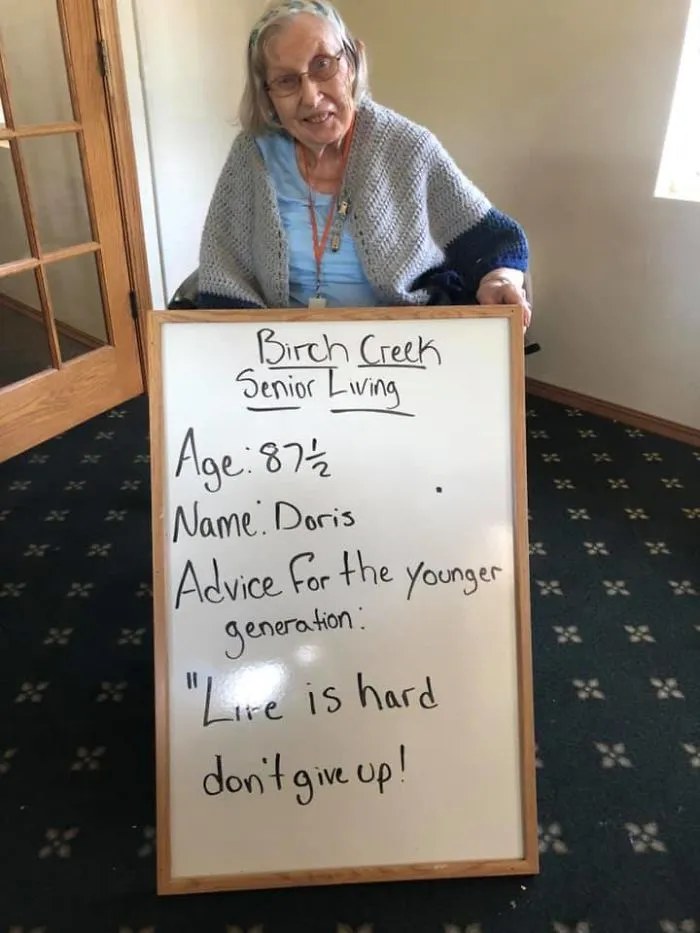 Birch Creek
Senior Living
Age: 87½
Name: Doris
Advice for the younger
generation:
"Life is hard
don't give up!